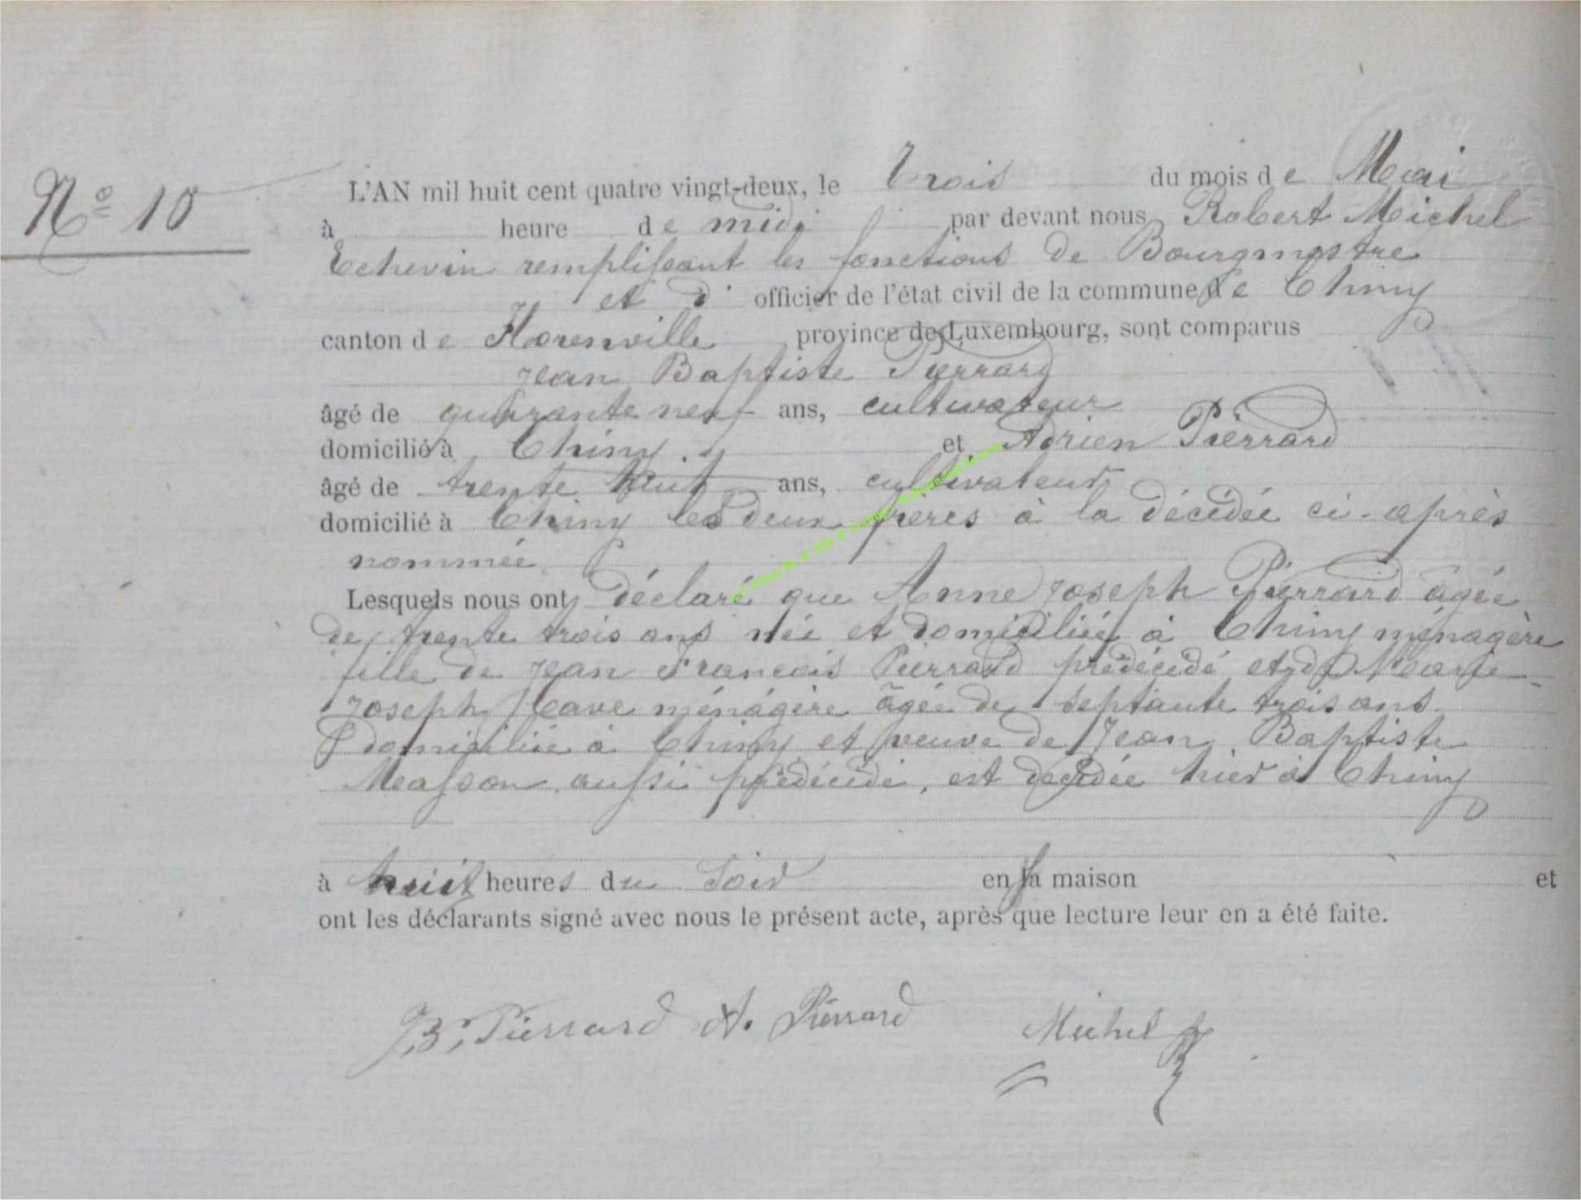 N° 10
L'AN mil huit cent quatre vingt-deux, le trois du mois de Mai
à heure de midi par devant nous Robert Michel
Echevin remplissant les fonctions de Bourgmestre
et d' officier de l'état civil de la commune de Chiny
canton de Florenville province de Luxembourg, sont comparus
Jean Baptiste Pierrard
âgé de quarante neuf ans, cultivateur
domicilié à Chiny et Adrien Pierrard
âgé de trente huit ans, cultivateur
domicilié à Chiny les deux frères à la décédée ci-après
nommée
Lesquels nous ont déclaré que Anne Joseph Pierrard âgée
de trente trois ans née et domiciliée à Chiny ménagère
fille de Jean François Pierrard prédécédé et de Marie
Joseph ménagère âgée de septante trois ans
domiciliée à Chiny et veuve de Jean Baptiste
Masson aussi prédécédé, est decédée hier à Chiny
à huit heures du soir en sa maison et
ont les déclarants signé avec nous le présent acte, après que lecture leur en a été faite.
JB. Pierrard A. Pierrard Michel R